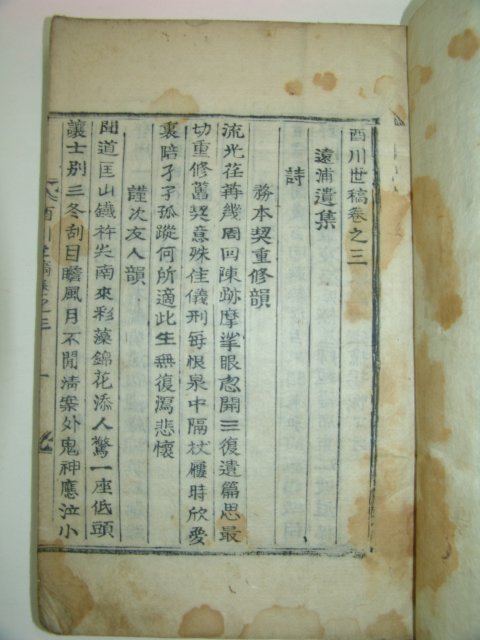 酉川世稿卷之三
遠浦遺集
詩
務本契重修韻
流光荏苒幾周回陳跡摩挲眼忽開三復遺篇思最
切重修舊契意殊佳儀刑每恨泉中隔杖屨時欣愛
裏陪孑孑孤蹤何所適此生無復瀉悲懷
謹次友人韻
聞道匡山鐵杵尖南來彩藻錦花添人驚一座低頭
讓士別三冬刮目瞻風月不閒淸案外鬼神應泣小
酉川世稿卷之三 一